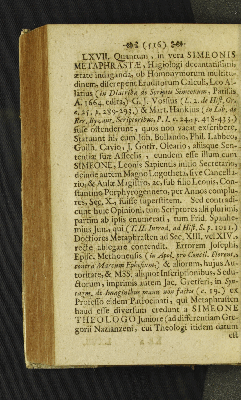 (516)
LXVII. Quantum, in vera SIMEONIS
METAPHRASTÆ, Hagiologi decantatissimi,
ætate indaganda, ob Homonymorum multitu-
dinem, discrepent Eruditorum Calculi, Leo Al-
latius (in Diatriba de Scriptis Simeonum, Parisiis
A. 1664. edita,) G. J. Vossius (L. 2. de Hist. Gr.
c. 25. p. 289-293.) & Mart. Hankius (in Lib. de
Rer. Byzant. Scriptoribus, P. I. c. 24. p. 418-433.)
fuse ostenderunt, quos non vacat exscribere.
Statuunt hi, cum Joh. Bollando, Phil. Labbeo,
Guilh. Cavio, J. Gottfr. Oleario, aliisque Sen-
tentiæ suæ Asseclis, eundem esse illum cum
SIMEONE, Leonis Sapientis initio Secretario,
deinde autem Magno Logotheta, sive Cancella-
rio, & Aulæ Magistro, ac sub filio Leonis, Con-
stantino Porphyrogenneto, per Annos complu-
res, Sec. X., fuisse superstitem. Sed contradi-
cunt huic Opinioni, tum Scriptores alii plurimi,
partim ab ipsis enumerati, tum Frid. Spanhe-
mius Jun., qui (T. II. Introd. ad Hist. S. p. 1011.)
Doctiores Metaphrasten ad Sec. XIII. vel XIV.,
recte ablegare contendit. Errorem Josephi,
Episc. Methonensis (in Apol. pro Concil. Florent.
contra Marcum Ephesium,) & aliorum, hujus Au-
toritate, & MSS. aliquot Inscriptionibus, Sedu-
ctorum, inprimis autem Jac. Gretseri, in Syn-
tagm. de Imaginibus manu non factis (c. 19.) ex
Professo eidem Patrocinati, qui Metaphrasten
haud esse diversum credunt a SIMEONE
THEOLOGO Juniore (ad differentiam Gre-
gorii Nazianzeni, cui Theologi itidem datum
est